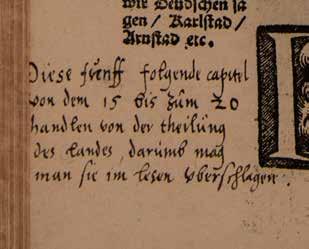 wir Deudschen sa
gen / Karlstad /
Arnstad etc.
Diese fünff folgende capitel
von dem 15 bis zum 20
handlen von der theilung
des landes, darumb mag
man sie im lesen vberschlagen.